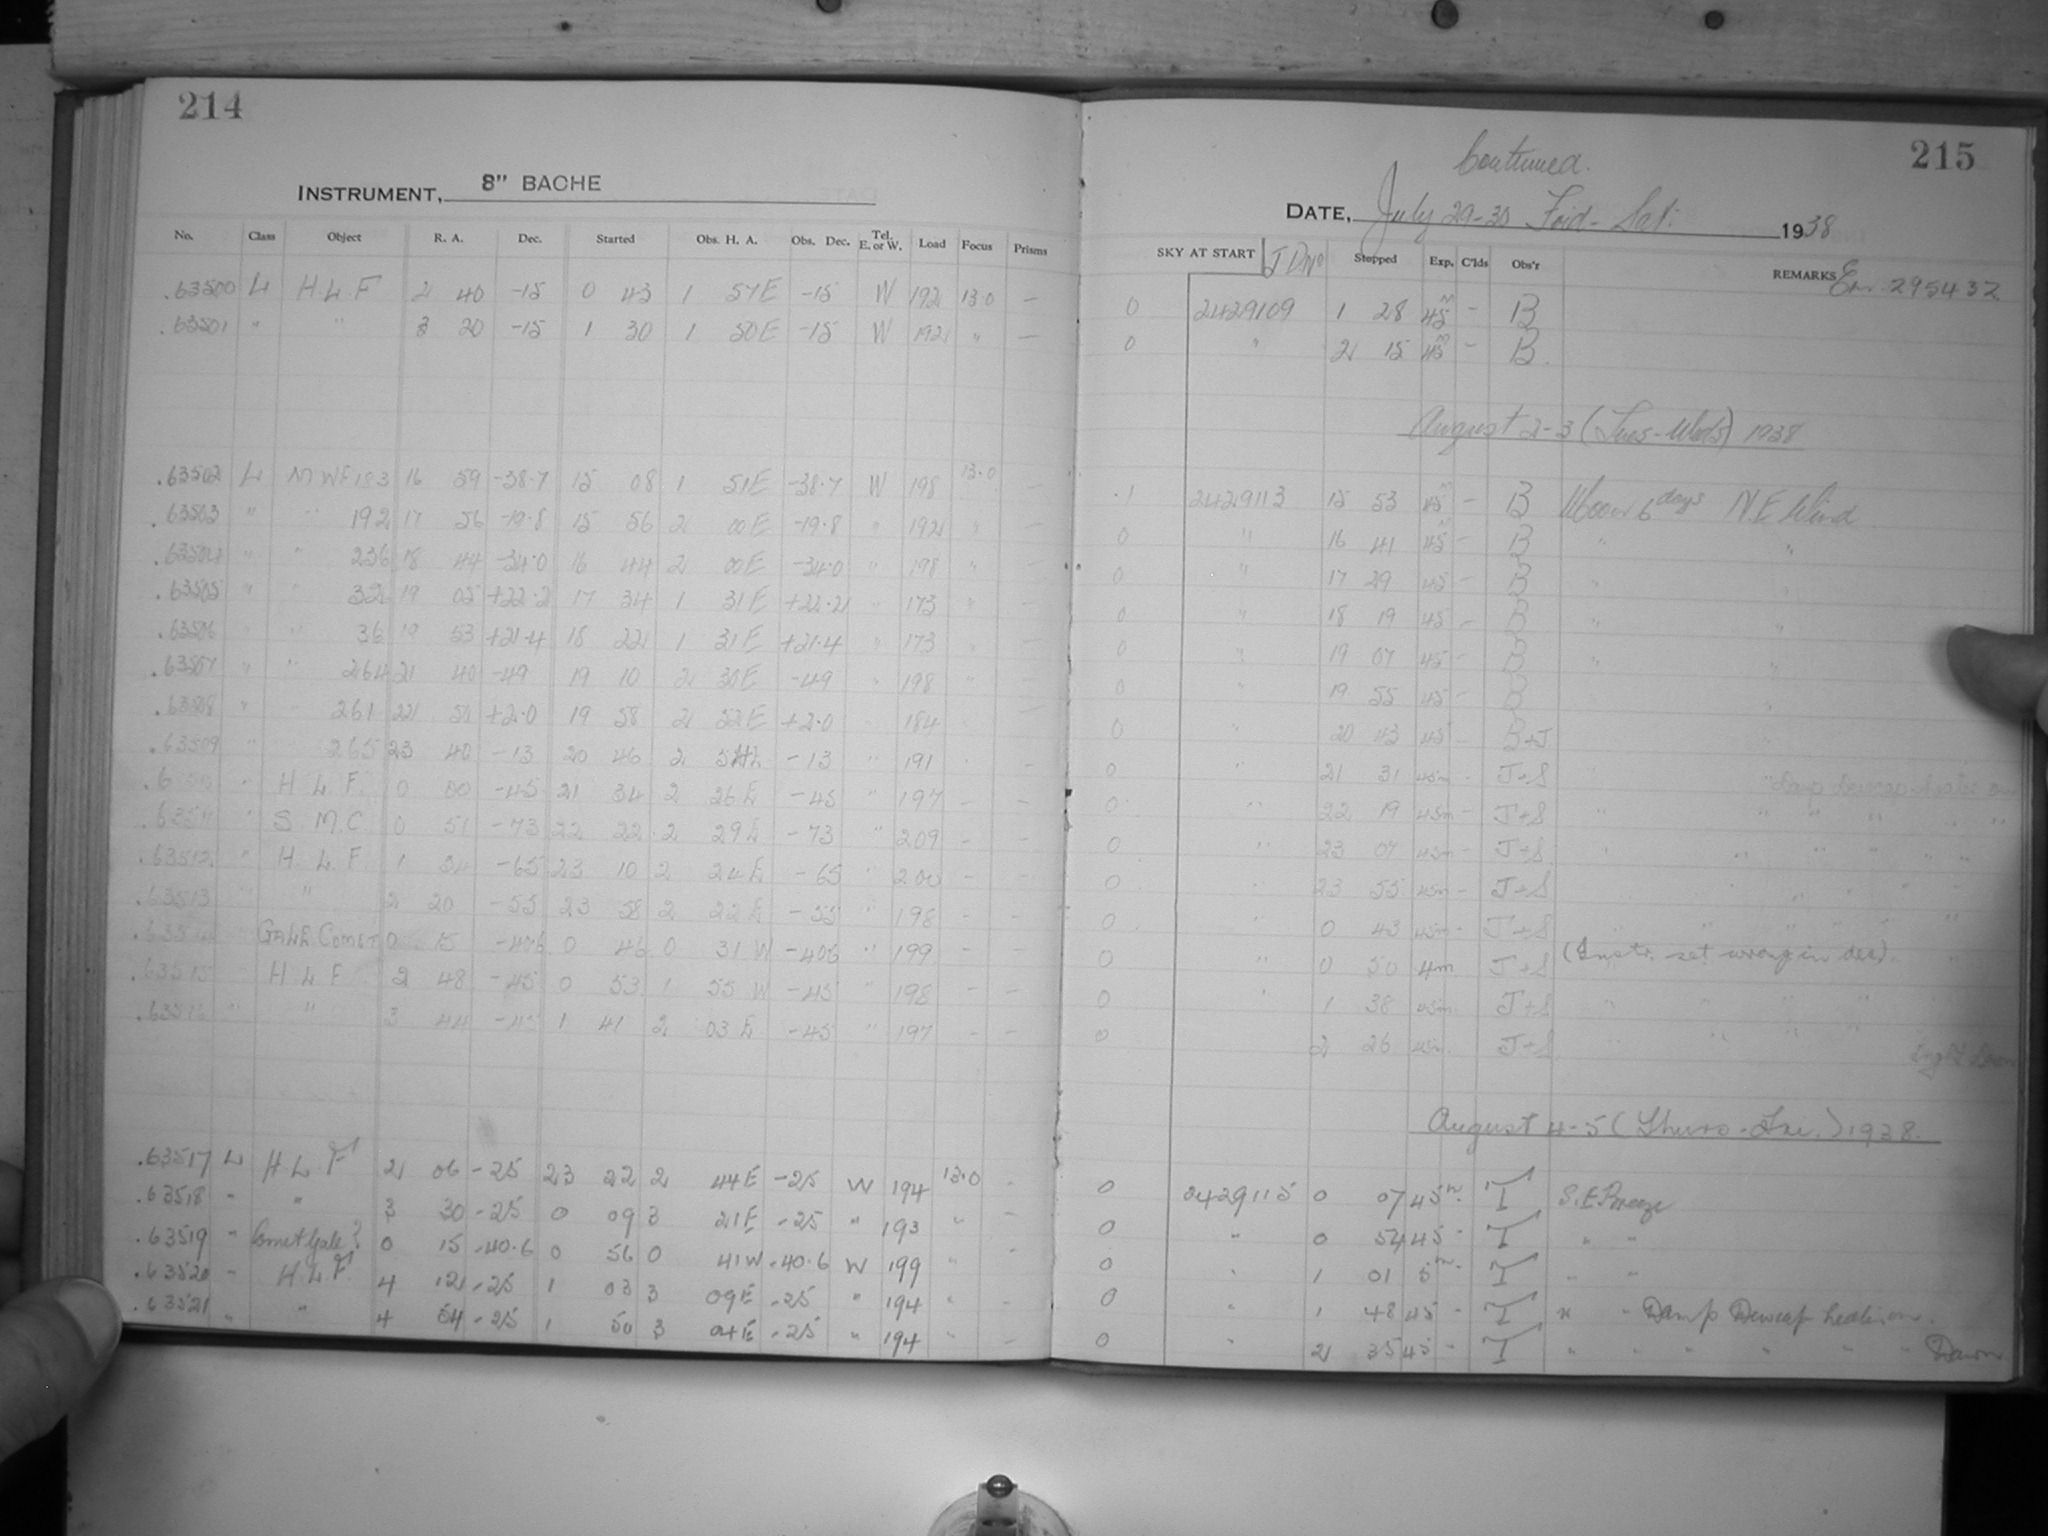 214
INSTRUMENT, 8" BACHE
No. Class Object R. A. Dec. Started Obs. H. A. Obs. Dec. Tel. E. or W. Load Focus Prisms
.63500 L H.L.F 2 40 -15 0 43 1 57E -15 W 192 13.0 —
.63501 " " 3 20 -15 1 30 1 50E -15 W 192 " —
.63502 L M WF 183 16 59 -38.7 15 08 1 51E -38.7 W 198 13.0 —
.63503 " " 192 17 56 -19.8 15 56 2 00E -19.8 " 192 " —
.63504 " " 236 18 44 -34.0 16 44 2 00E -34.0 " 198 " —
.63505 " " 32 19 05 +22.2 17 34 1 31E +22.2 " 173 " —
.63506 " " 36 19 53 +21.4 18 22 1 31E +21.4 " 173 " —
.63507 " " 264 21 40 -49 19 10 2 30E -49 " 198 " —
.63508 " 261 22 50 +2.0 19 58 2 52E +2.0 " 184 —
.63509 " 265 23 40 -13 20 46 2 54E -13 " 191 —
" H L F. 0 00 -45 21 34 2 26E -45 " 197 — —
.63511 " S. M.C. 0 51 -73 22 22 2 29E -73 " 209 — —
.63512 " H. L. F. 1 34 -65 23 10 2 24E -65 " 200 — —
.63513 " " 2 20 -55 23 58 2 22E -55 " 198 — —
GALE COMET 0 15 -406 0 46 0 31 W -406 " 199 — —
.63515 " H L F 2 48 -45 0 53 1 55 W -45 " 198 — —
.63516 " " 3 44 -45 1 41 2 03E -45 " 197 — —
.63517 L H L F 2 06 -25 23 22 2 44E -25 W 194 13.0 -
.63518 " " 3 30 -25 0 09 3 21E -25 " 193 " -
.63519 " Comet Gale? 0 15 -40.6 0 56 0 41W -40.6 W 199 " -
.63520 - H.L.F. 4 12 -25 1 03 3 09E -25 " 194 " -
.63521 " " 4 54 -25 1 50 3 04E -25 " 194 " -
215
Continued.
DATE, July 29-30 Frid-Sat. 1938
SKY AT START J D No Stopped Exp. C'lds Obs'r REMARKS Em. 295432
0 2429109 1 28 45m - B
0 " 2 15 45m - B.
August 2-3 (Tues-Weds) 1938
.1 2429113 15 53 45m - B Moon 6 days N.E Wind
0 " 16 41 45m - B " "
0 " 17 29 45 - B " "
0 " 18 19 45 - B " "
0 " 19 07 45 - B " "
0 " 19 55 45 - B "
0 " 20 43 45 - B+J "
0 " 21 31 45m - J+S " Damp Dewcap heater on
0 " 22 19 45m - J+S " " " " "
0 " 23 07 45m - J+S. " " " " "
0 " 23 55 45m - J+S " " "
0 " 0 43 45m - J+S " " " "
0 " 0 50 4m J+S (Instr. set wrong in dec).
0 " 1 38 45m J+S " " " "
0 2 26 45m J+S " "
August 4-5 (Thurs-Fri.) 1938.
0 2429115 0 07 45m. T S.E Breeze
0 " 0 54 45 - T " "
0 " 1 01 5m. T " "
0 " 1 48 45 - T " " Damp Dewcap heater on.
0 " 2 35 45 - T " " " " " Dawn